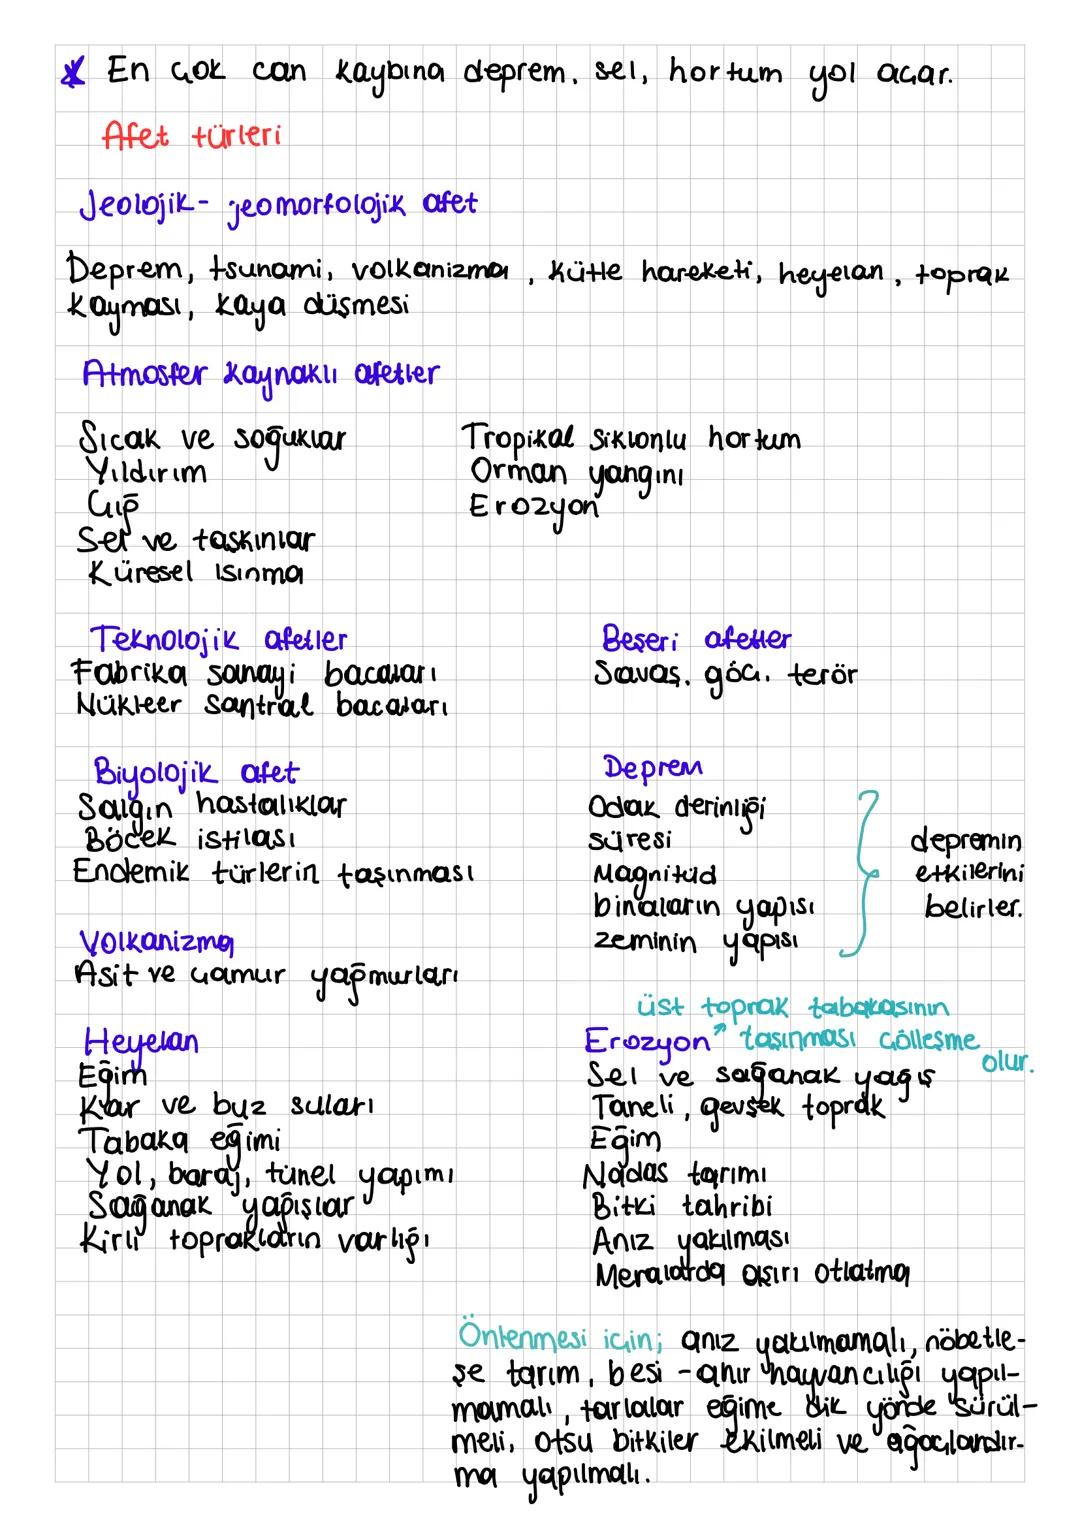 * En çok can kaybına deprem, sel, hortum yol açar.
Afet türleri
Jeolojik - jeomorfolojik afet
Deprem, tsunami, volkanizma, kütle hareketi, heyelan, toprak
kayması, kaya düşmesi
Atmosfer kaynaklı afetler
Sıcak ve soğuklar
Yıldırım
Çığ
Sel ve taşkınlar
Küresel ısınma
Tropikal siklonlu hortum
Orman yangını
Erozyon
Teknolojik afetler
Fabrika sanayi bacaları
Nükleer santral bacaları
Beşeri afetler
Savaş, göç, terör
Biyolojik afet
Salgın hastalıklar
Böcek istilası
Endemik türlerin taşınması
Deprem
Odak derinliği
süresi
Magnitüd
binaların yapısı
zeminin yapısı
depremin
etkilerini
belirler.
Volkanizma
Asit ve çamur yağmurları
Heyelan
Eğim
Kar ve buz suları
Tabaka eğimi
Yol, baraj, tünel yapımı
Sağanak yağışlar
Kirli toprakların varlığı
üst toprak tabakasının
Erozyon ↗ taşınması çölleşme
olur.
Sel ve sağanak yağış
Taneli, gevşek toprak
Eğim
Nadas tarımı
Bitki tahribi
Anız yakılması
Meralarda aşırı otlatma
Önlenmesi için; anız yakılmamalı, nöbetle-
şe tarım, besi - ahır hayvancılığı yapıl-
mamalı, tarlalar eğime dik yönde sürül-
meli, otsu bitkiler ekilmeli ve ağaçlandır-
ma yapılmalı.